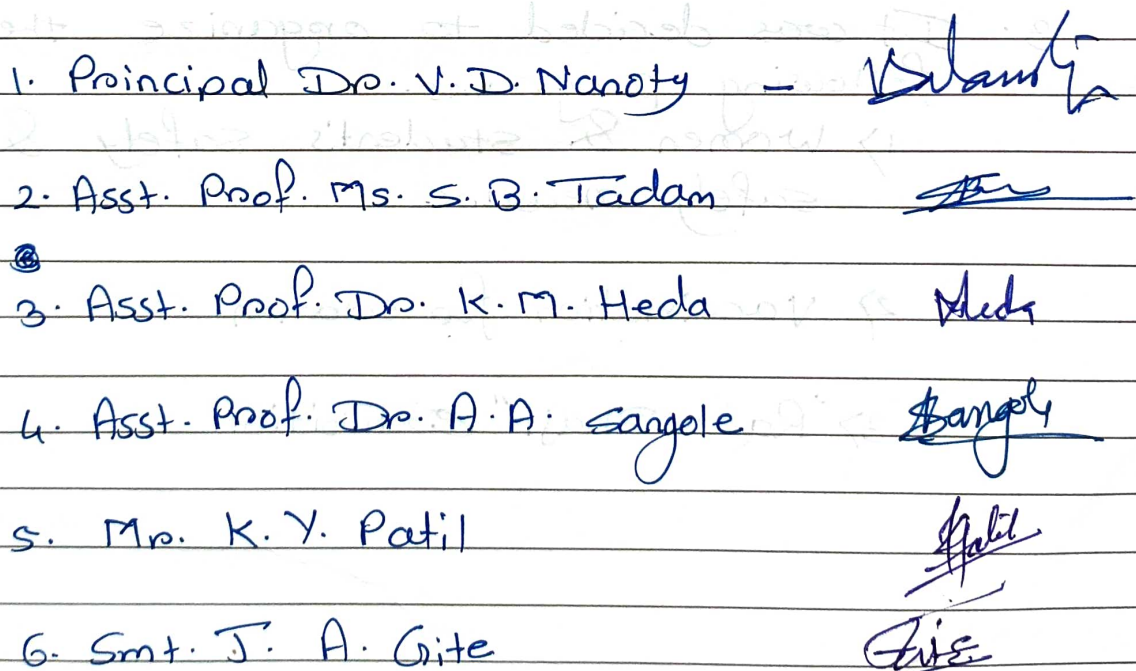 1. Principal Dr. V. D. Nanoty -
2. Asst. Prof. Ms. S. B. Tadam
3. Asst. Prof. Dr. K. M. Heda Heda
4. Asst. Prof. Dr. A. A. Sangole Sangole
5. Mr. K. Y. Patil Patil
6. Smt. J. A. Gite Gite